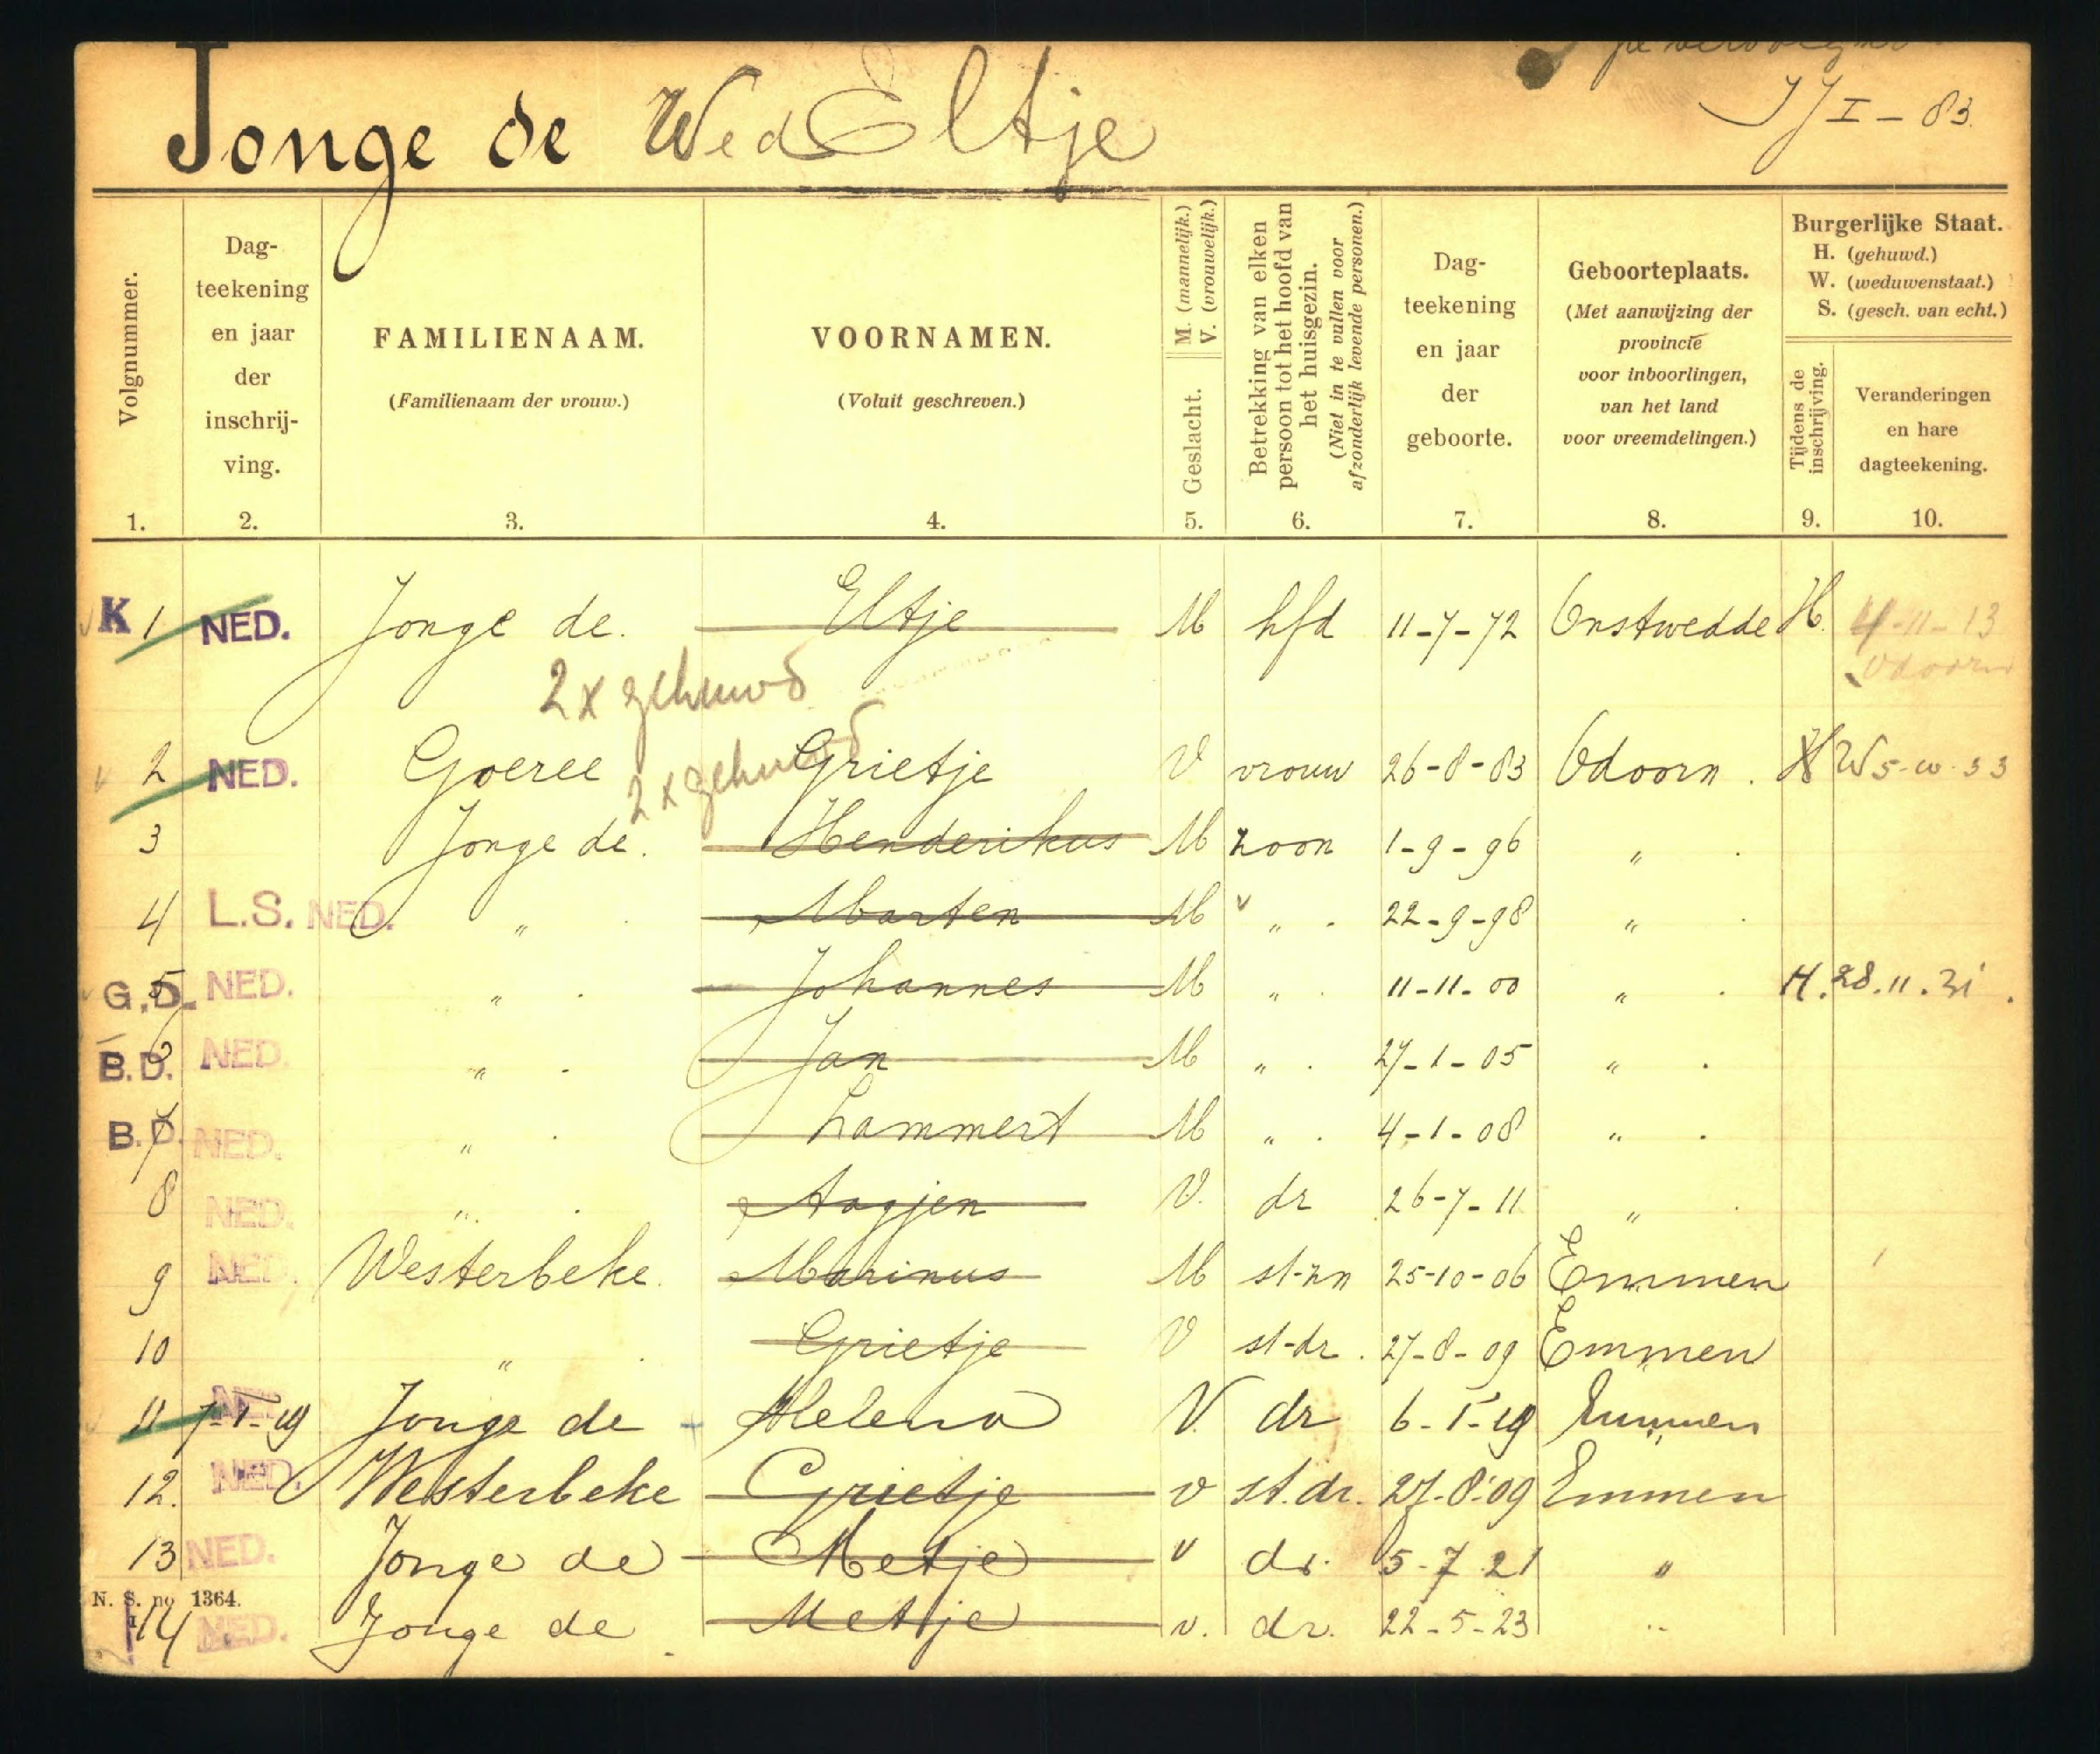 Jonge de Wed Eltje
I - 83.
Volgnummer.
1.
Dag-
teekening
en jaar
der
inschrij-
ving.
2.
FAMILIENAAM.
(Familienaam der vrouw.)
3.
VOORNAMEN.
(Voluit geschreven.)
4.
M. (mannelijk.)
V. (vrouwelijk.)
Geslacht.
5.
Betrekking van elken
persoon tot het hoofd van
het huisgezin.
(Niet in te vullen voor
afzonderlijk levende personen.)
6.
Dag-
teekening
en jaar
der
geboorte.
7.
Geboorteplaats.
(Met aanwijzing der
provincie
voor inboorlingen,
van het land
voor vreemdelingen.)
8.
Burgerlijke Staat.
H. (gehuwd.)
W. (weduwenstaat.)
S. (gesch. van echt.)
Tijdens de
inschrijving.
9.
Veranderingen
en hare
dagteekening.
10.
K 1 NED. Jonge de. Eltje M hfd 11-7-72 Onstwedde H. 4-11-13
Odoorn
2 x gehuwd
2 NED. Goeree Grietje V vrouw 26-8-83 Odoorn . H W 5-10-33
2 x gehuwd
3 Jonge de. Henderikus M zoon 1-9-96 "
4 L.S. NED. " Marten M " 22-9-98 "
G.D. 5 NED. " Johannes M " 11-11-00 " H. 28.11.31.
B.D. 6 NED. " Jan M " 27-1-05 "
B.D. 7 NED. " Lammert M " 4-1-08 "
8 NED. " Aagjen V. dr 26-7-11 "
9 NED. Westerbeke Marinus M st-zn 25-10-06 Emmen
10 " Grietje V st-dr. 27-8-09 Emmen
11 NED. 7-1-19 Jonge de Helena V. dr 6-1-19 Emmen
12. NED. Westerbeke Grietje v st.dr. 27-8-09 Emmen
13 NED. Jonge de Metje v dr. 5-7 21 "
N. S. no 1364.
14 NED. Jonge de Metje v. dr. 22-5-23 "